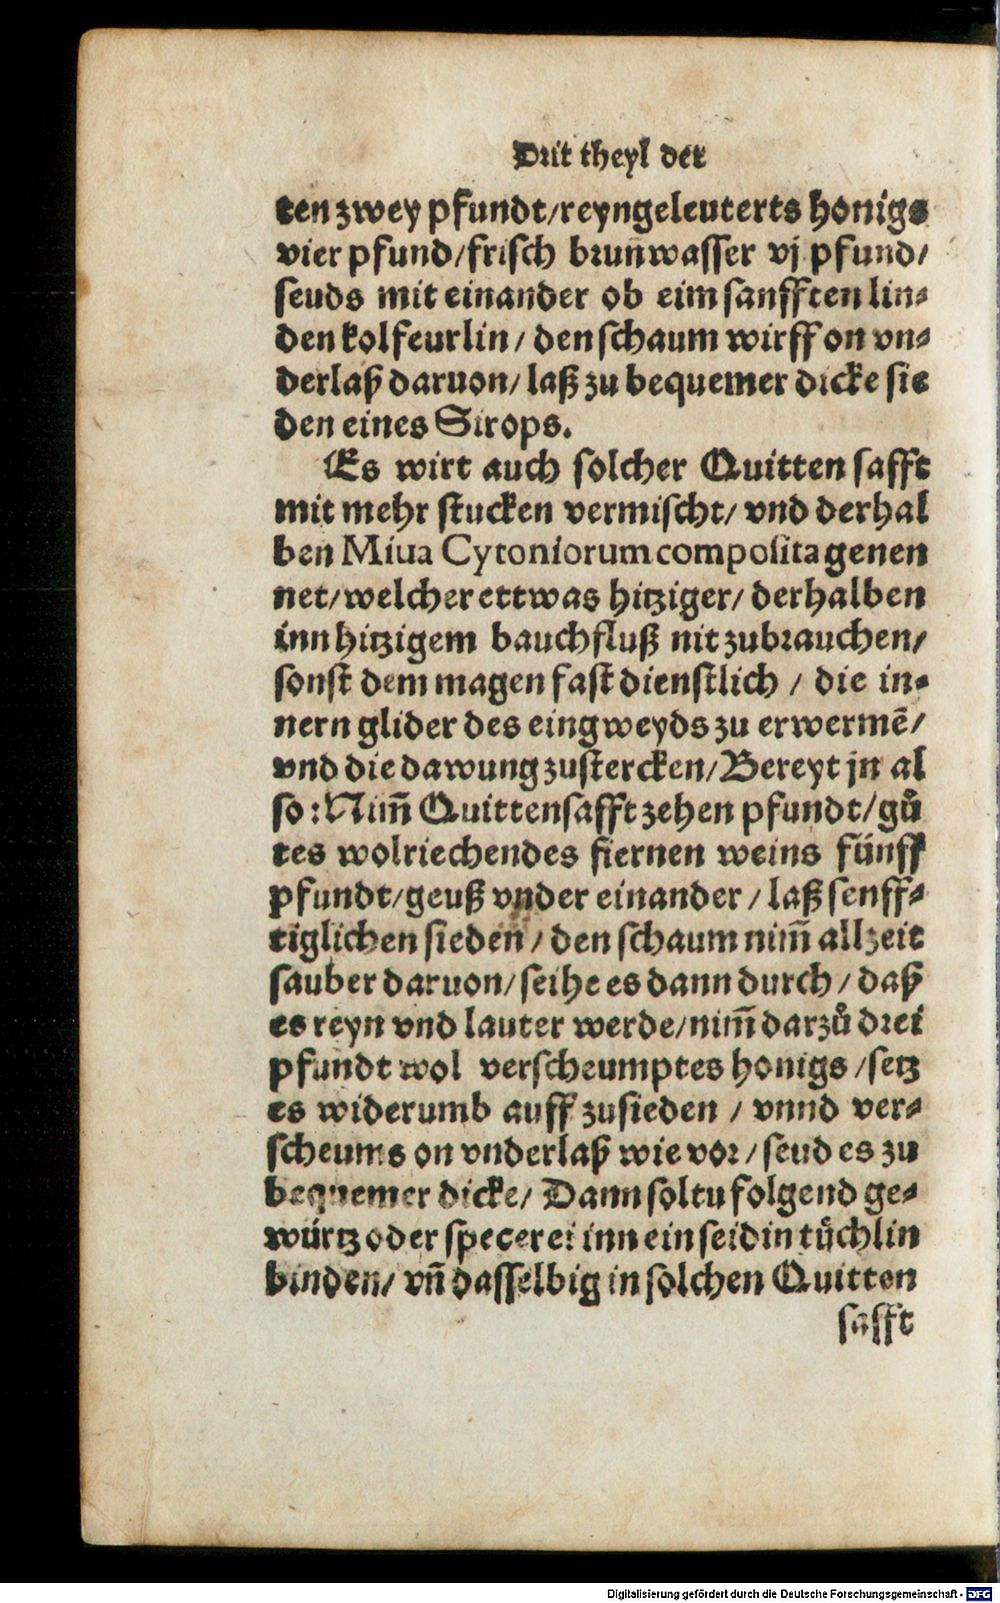 Drit theyl der
ten zwey pfundt/reyngeleuterts honigs
vier pfund/frisch brun̄wasser vj pfund/
seuds mit einander ob eim sanfften lin⸗
den kolfeurlin/ den schaum wirff on vn⸗
derlaß daruon/ laß zu bequemer dicke sie
den eines Sirops.
Es wirt auch solcher Quitten safft
mit mehr stucken vermischt/ vnd derhal
ben Miua Cytoniorum composita genen
net/welcher ettwas hitziger/ derhalben
inn hitzigem bauchfluß nit zubrauchen/
sonst dem magen fast dienstlich / die in⸗
nern glider des eingweyds zu erwermē/
vnd die dawung zustercken/Bereyt jn al
so: Nim̄ Quittensafft zehen pfundt/gů
tes wolriechendes fiernen weins fünff
pfundt/geuß vnder einander / laß senff⸗
tiglichen sieden / den schaum nim̄ allzeit
sauber daruon/ seihe es dann durch / daß
es reyn vnd lauter werde/nim̄ darzů drei
pfundt wol verscheumptes honigs /setz
es widerumb auff zusieden / vnnd ver⸗
scheums on vnderlaß wie vor / seud es zu
bequemer dicke/ Dann soltu folgend ge⸗
würtz oder specerei inn ein seidin tůchlin
binden/ vn̄ dasselbig in solchen Quitten
safft
Digitalisierung gefördert durch die Deutsche Forschungsgemeinschaft - DFG